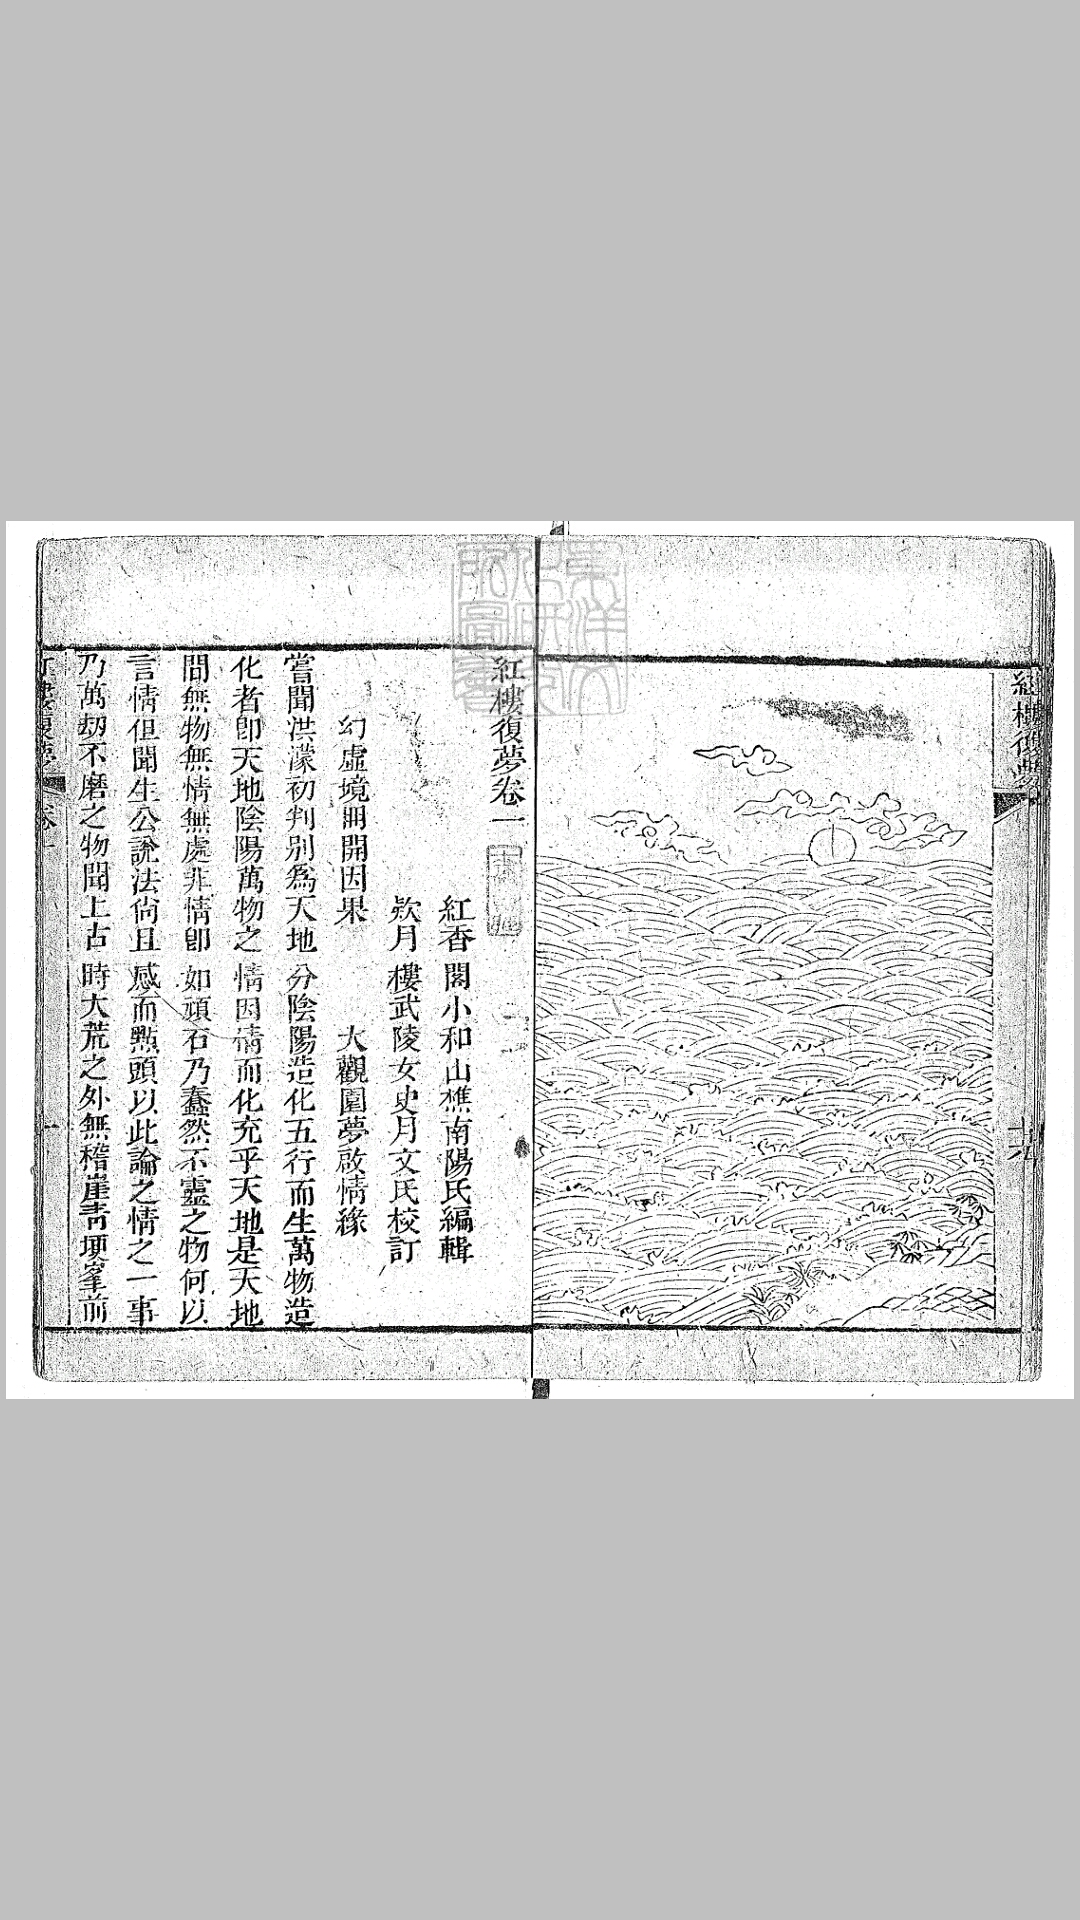 紅樓復夢
紅樓復夢卷一
紅香閣小和山樵南陽氏編輯
欵月樓武陵女史月文氏校訂
幻虛境冊開因果　大觀園夢啟情緣
嘗聞洪濛初判別爲天地分陰陽造化五行而生萬物造
化者卽天地陰陽萬物之情因情而化充乎天地是天地
間無物無情無處非情卽如頑石乃蠢然不靈之物何以
言情但聞生公說法尙且感而㸃頭以此論之情之一事
乃萬刼不磨之物聞上古時大荒之外無稽崖靑埂峯前
紅樓復夢
卷一
一